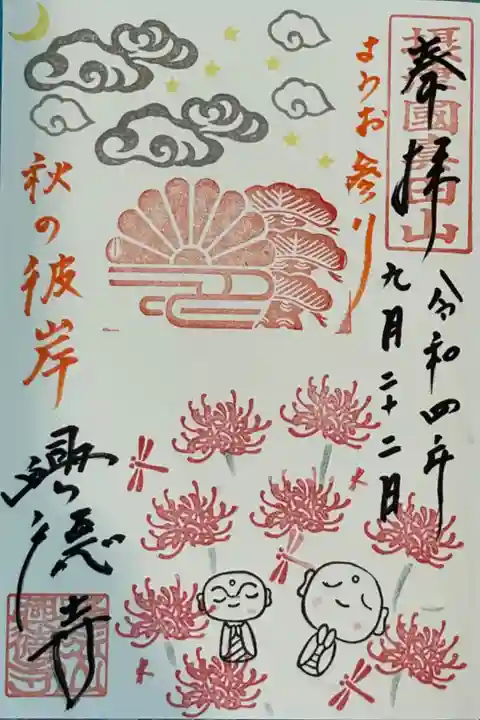 奉拝
摂津國真田山
令和四年
九月二十二日
ようお参り
秋の彼岸
興徳寺